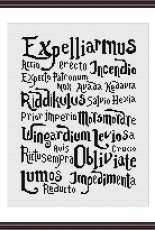 Expelliarmus
Accio Erecto Incendio
Expecto Patronum
Nox Avada Kedavra
Riddikulus Salvio Hexia
Prior Imperio Morsmordre
Wingardium Leviosa
Avis Crucio
Rictusempra Obliviate
Lumos Impedimenta
Reducto